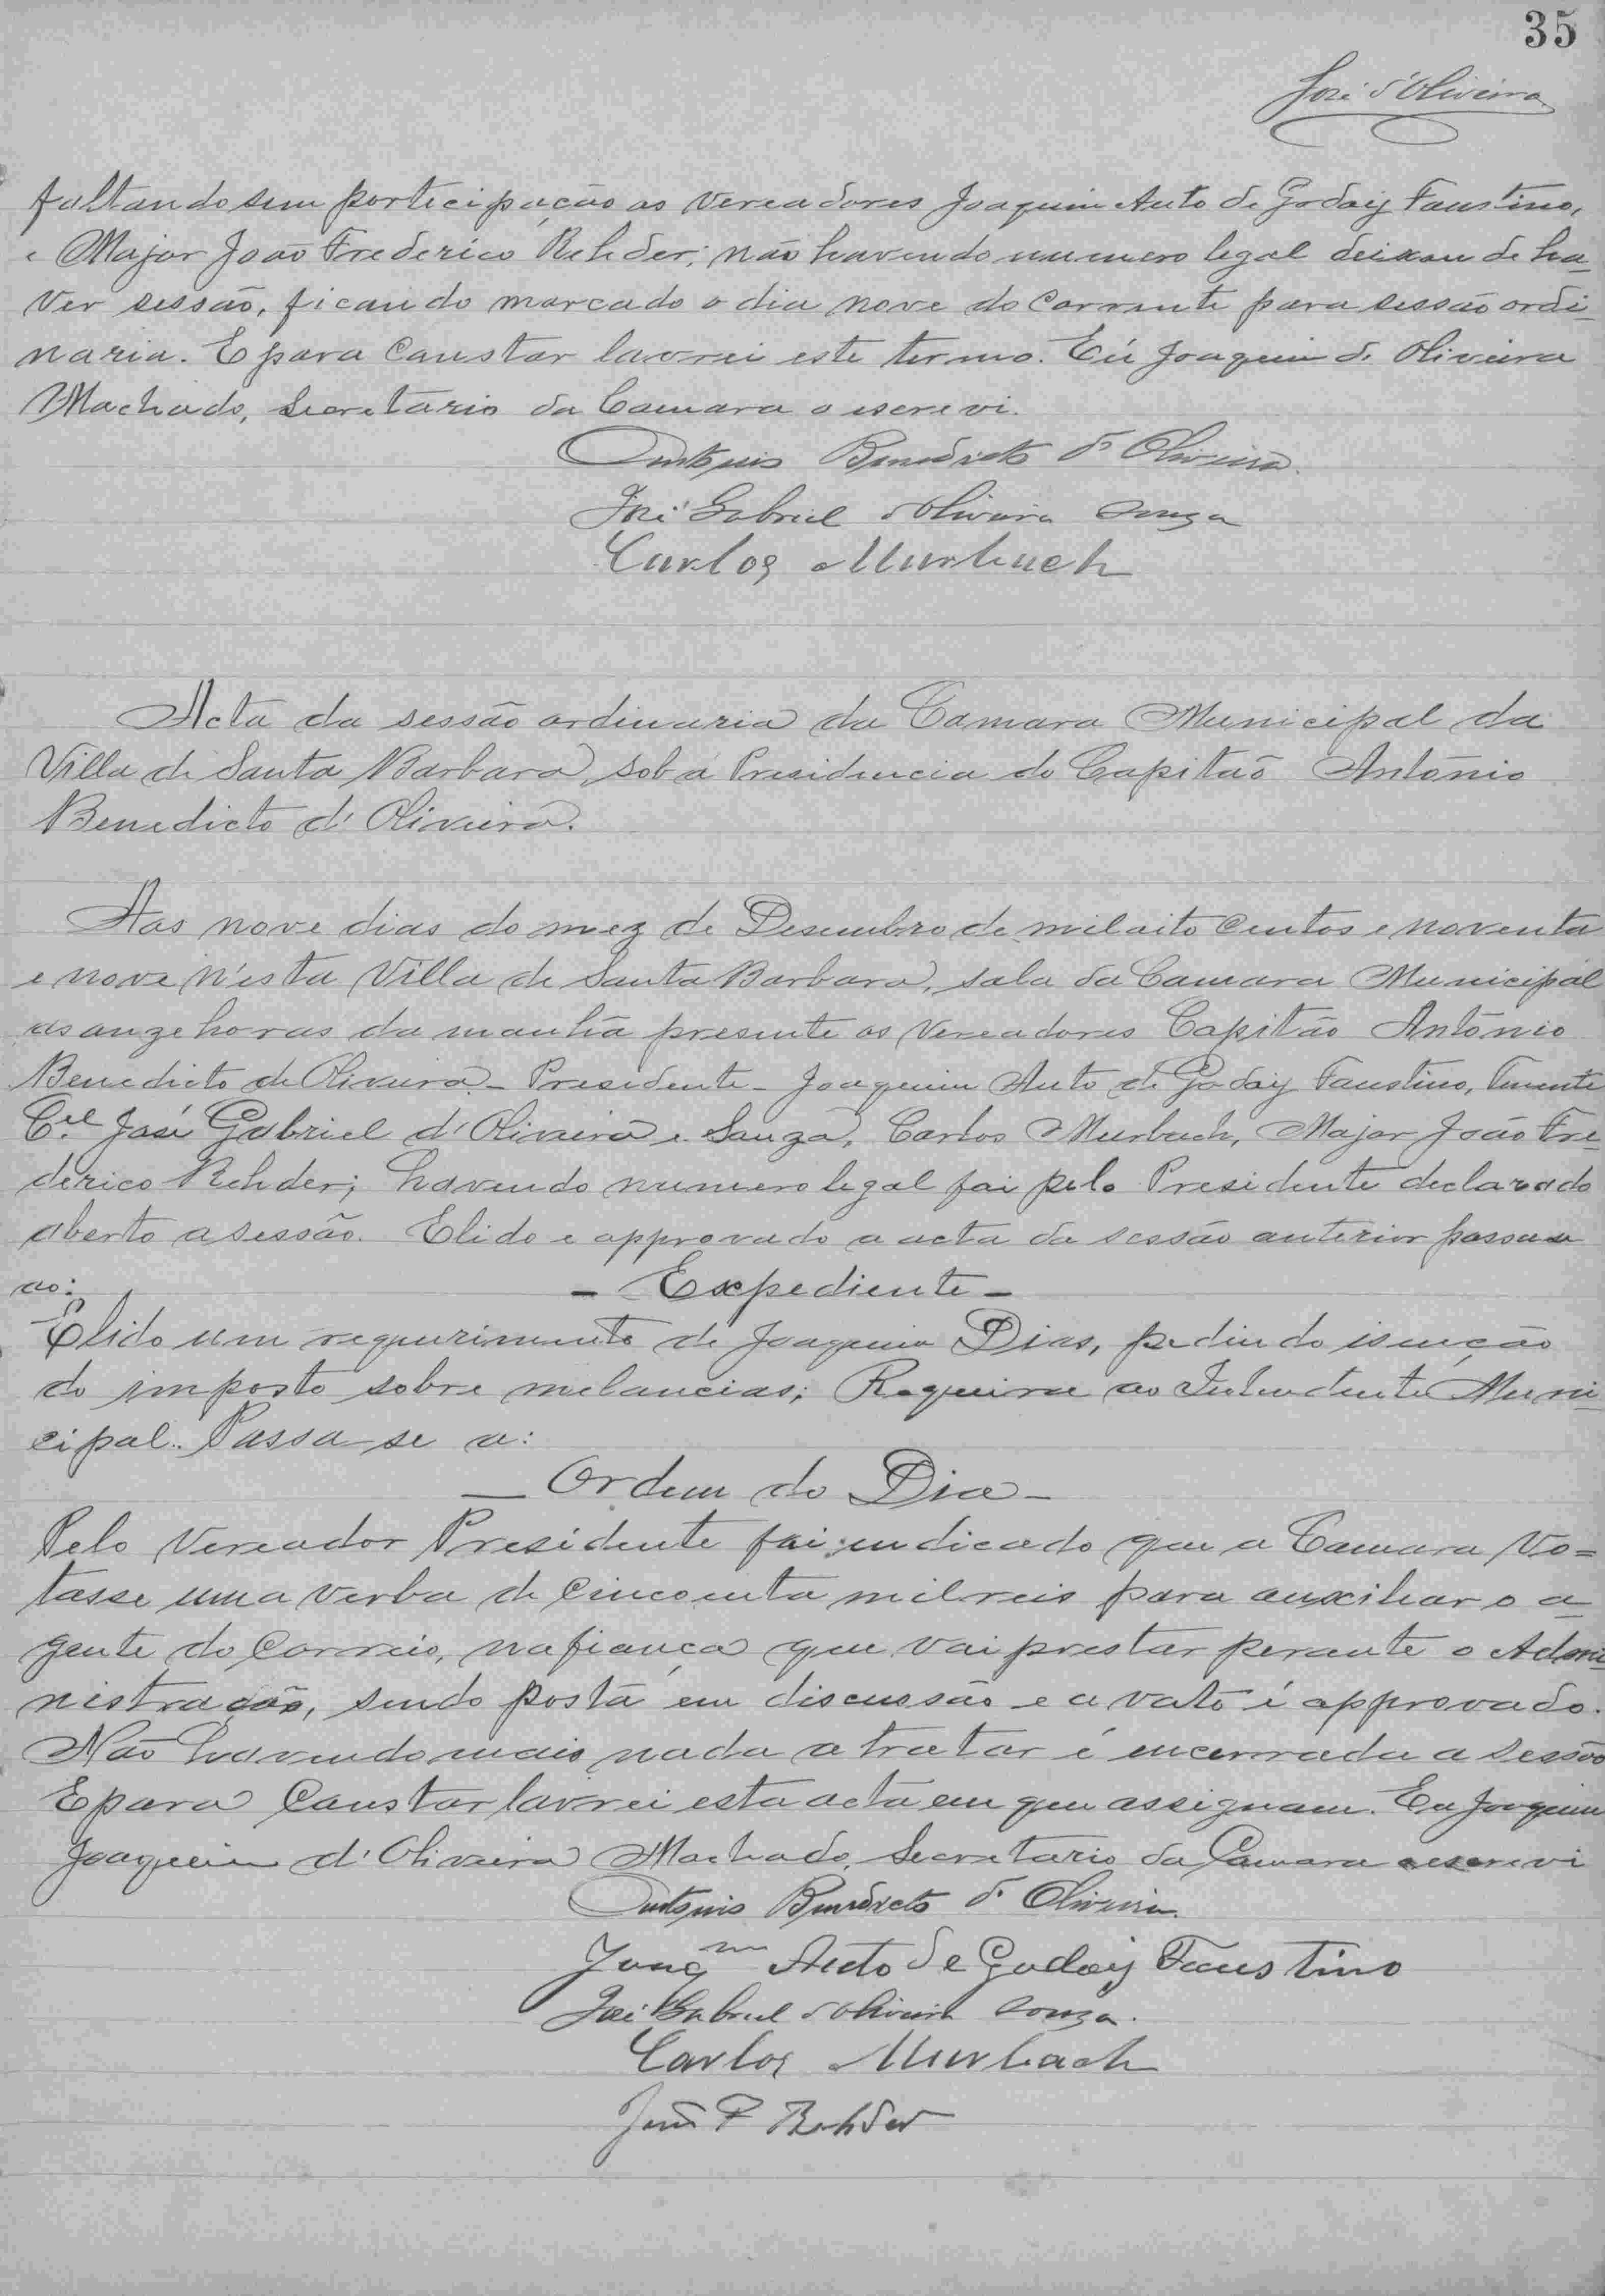 35
José d'Oliveira
faltando sem participação os Vereadores Joaquim Auto de Godoiy Faustino,
e Major João Frederico Rehder; não havendo numero legal deixou de ha-
ver sessão, ficando marcado o dia nove do Corrente para sessão ordi-
naria. E para Constar lavrei este termo. Eu Joaquim de Oliveira
Machado, Secretario da Camara o escrevi.
Antonio Benedicto d'Oliveira.
José Gabriel d'Oliveira Souza
Carlos Murbach
Acta da sessão ordinaria da Camara Municipal da
Villa de Santa Barbara, sob a Presidencia do Capitão Antônio
Benedicto d'Oliveira.
Aos nove dias do mez de Desembro de mil oito Centos e noventa
e nove n'esta Villa de Santa Barbara, sala da Camara Municipal
as onze horas da manhã presente os Vereadores Capitão Antônio
Benedicto de Oliveira - Presidente - Joaquim Auto de Godoiy Faustino, Tenente
Cel José Gabriel d'Oliveira e Souza, Carlos Murbach, Major João Fre-
derico Rehder; havendo numero legal foi pelo Presidente declarado
aberto a sessão. E lido e approvado a acta da sessão anterior passou
ao:
- Expediente -
E lido um requerimento de Joaquim Dias, pedindo isenção
do imposto sobre melancias; Requeira ao Intendente Muni-
cipal. Passa-se a:
- Ordem do Dia -
Pelo Vereador Presidente foi indicado que a Camara Vo=
tasse uma verba de Cincoenta milreis para auxiliar o a-
gente do Correio, na fiança que vai prestar perante o Admi-
nistração, sendo posta em discussão e a voto é approvado.
Não havendo mais nada a tratar é encerrada a Sessão
E para Constar lavrei esta acta em que assignam. Eu Joaquim
Joaquim d'Oliveira Machado, Secretario da Camara o escrevi
Antonio Benedicto d'Oliveira.
Joaqm Aucto de Godoiy Faustino
José Gabriel d'Oliveira Souza.
Carlos Murbach
João F Rehder